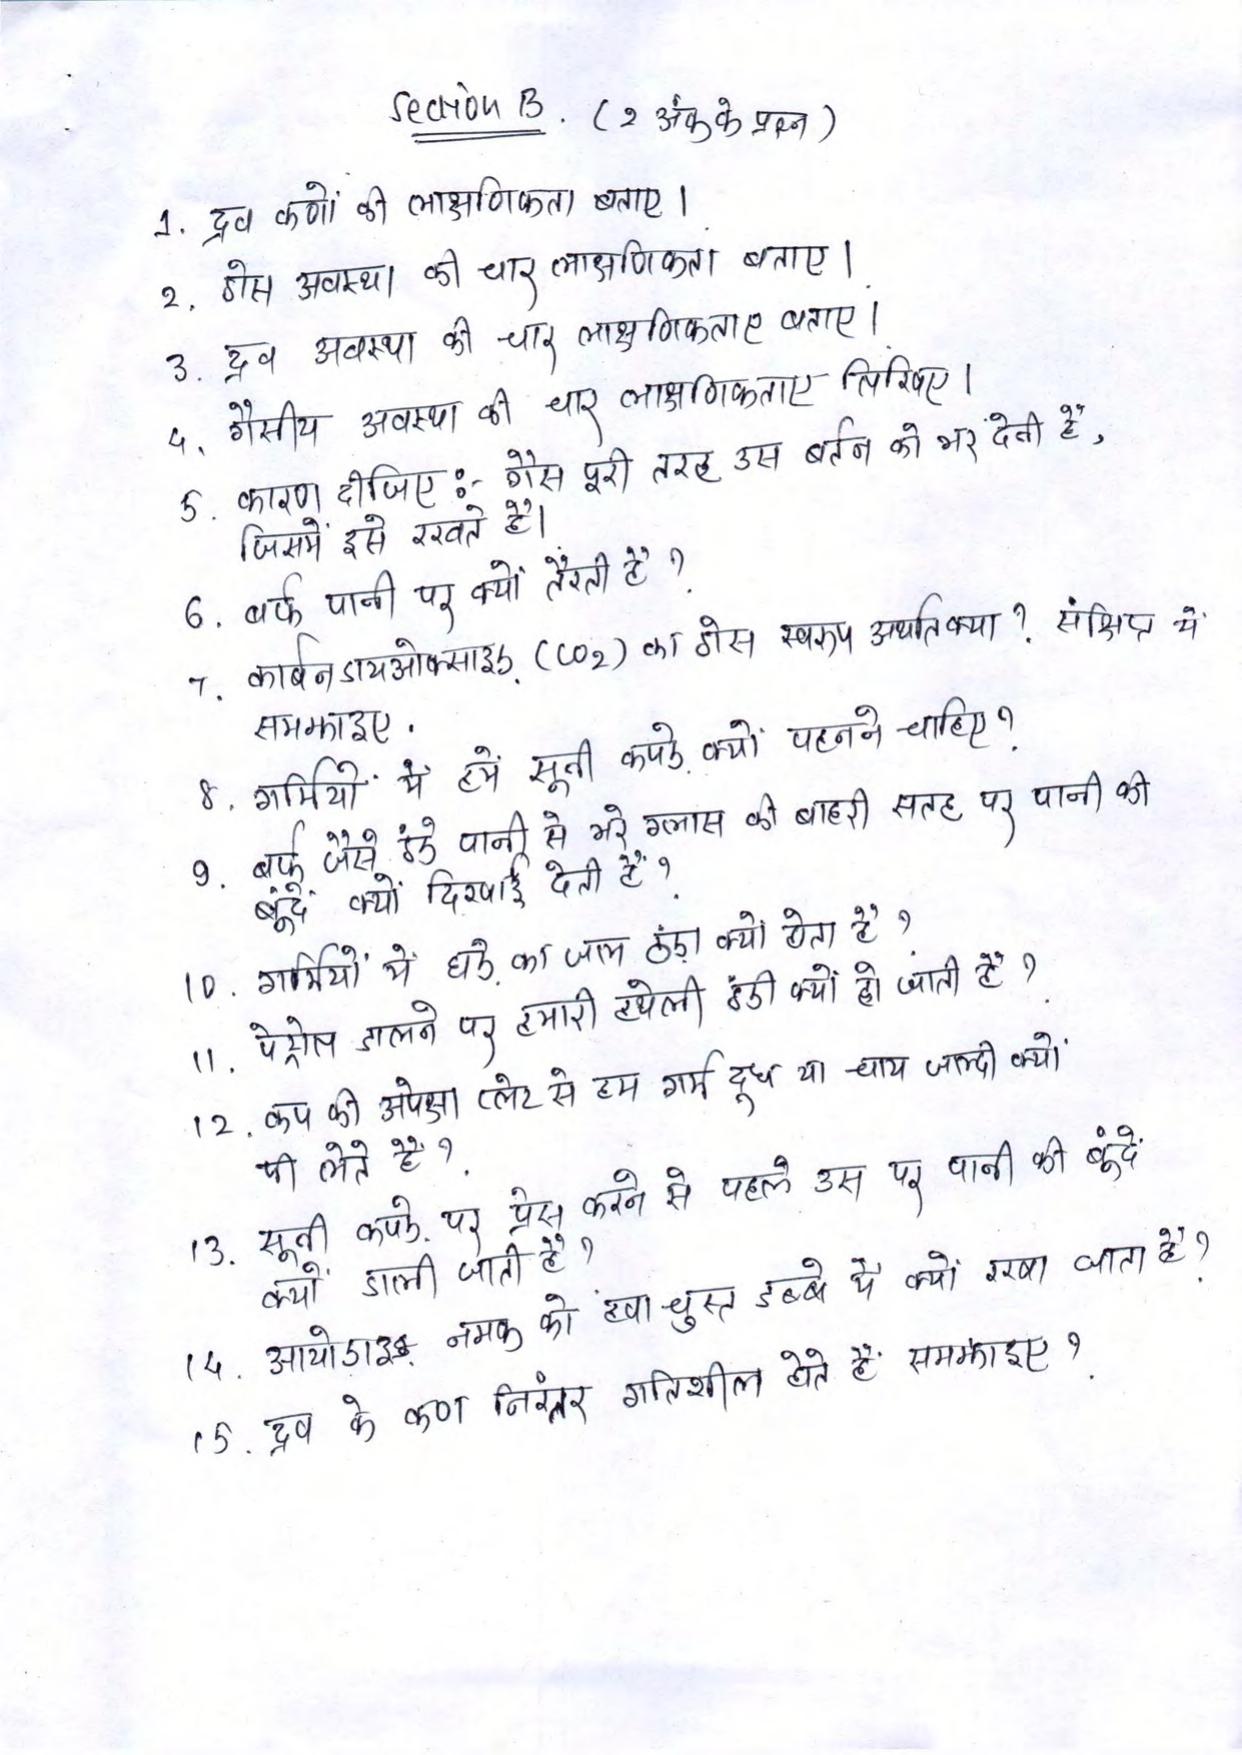 Section B. (2 अंक के प्रश्न)
1. द्रव कणों की लाक्षणिकता बताए।
2. ठोस अवस्था की चार लाक्षणिकता बताए।
3. द्रव अवस्था की चार लाक्षणिकताए बताए।
4. गैसीय अवस्था की चार लाक्षणिकताए लिखिए।
5. कारण दीजिए :- गैस पूरी तरह उस बर्तन को भर देती है,
जिसमें इसे रखते है।
6. बर्फ पानी पर क्यों तैरती है ?
7. कार्बन डायओक्साइड (CO2) का ठोस स्वरूप अर्थात क्या ? संक्षिप्त में
समझाइए .
8. गर्मियों में हमें सूती कपडे क्यों पहनने चाहिए ?
9. बर्फ जैसे ठंडे पानी से भरे ग्लास की बाहरी सतह पर पानी की
बूंदें क्यों दिखाई देती है ?
10. गर्मियों में घडे का जल ठंडा क्यों होता है ?
11. पेट्रोल डालने पर हमारी हथेली ठंडी क्यों हो जाती है ?
12. कप की अपेक्षा प्लेट से हम गर्म दूध या चाय जल्दी क्यों
पी लेते है ?
13. सूती कपडे पर प्रेस करने से पहले उस पर पानी की बूंदें
क्यों डाली जाती है ?
14. आयोडाइड नमक को हवा चुस्त डब्बे में क्यों रखा जाता है ?
15. द्रव के कण निरंतर गतिशील होते है समझाइए ?